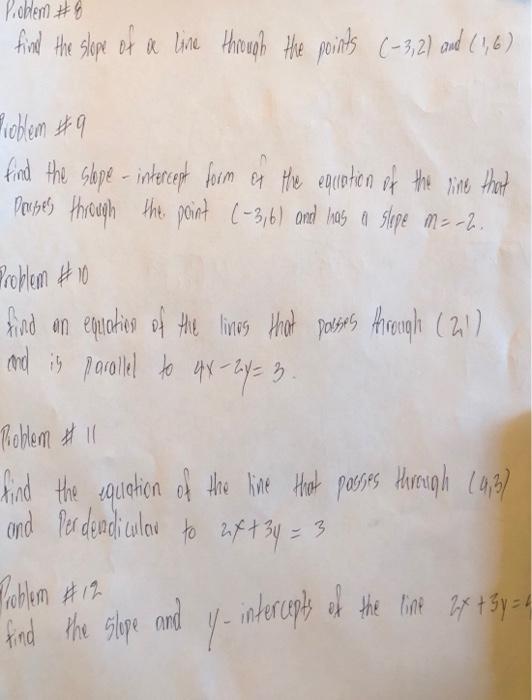 Problem #8
find the slope of a line through the points (-3,2) and (1,6)
Problem #9
find the slope-intercept form of the equation of the line that
passes through the point (-3,6) and has a slope m=-2.
Problem #10
find an equation of the lines that passes through (2,1)
and is parallel to 4x-2y=3.
Problem #11
find the equation of the line that passes through (4,3)
and Perdendicular to 2x+3y=3
Problem #12
find the slope and y-intercepts of the line 2x+3y=